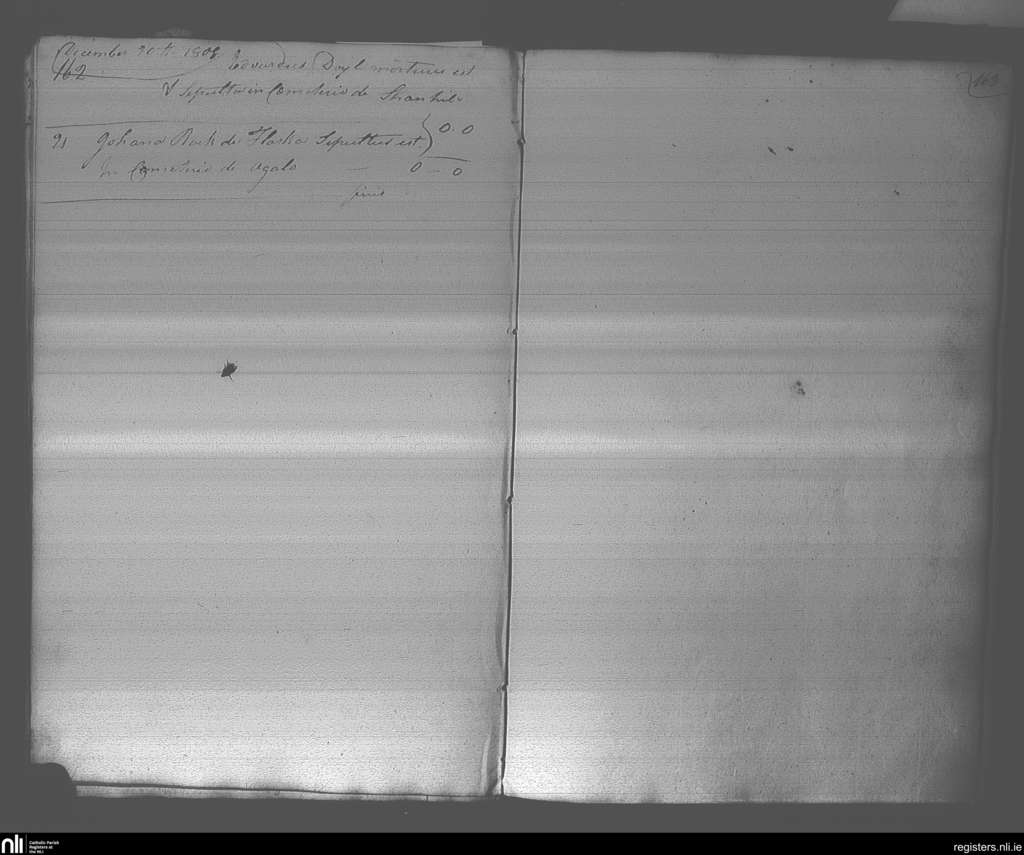 December 20th 1808 Edvardus Doyl mortuus est
162
& Sepultus in Cometerio de Shanhil
21 Johana Rock de Flaska Sepultus est } 0.0
In Cometerio de Agalo — 0 – 0
finis
163
nli Catholic Parish
Registers at
the NLI
registers.nli.ie